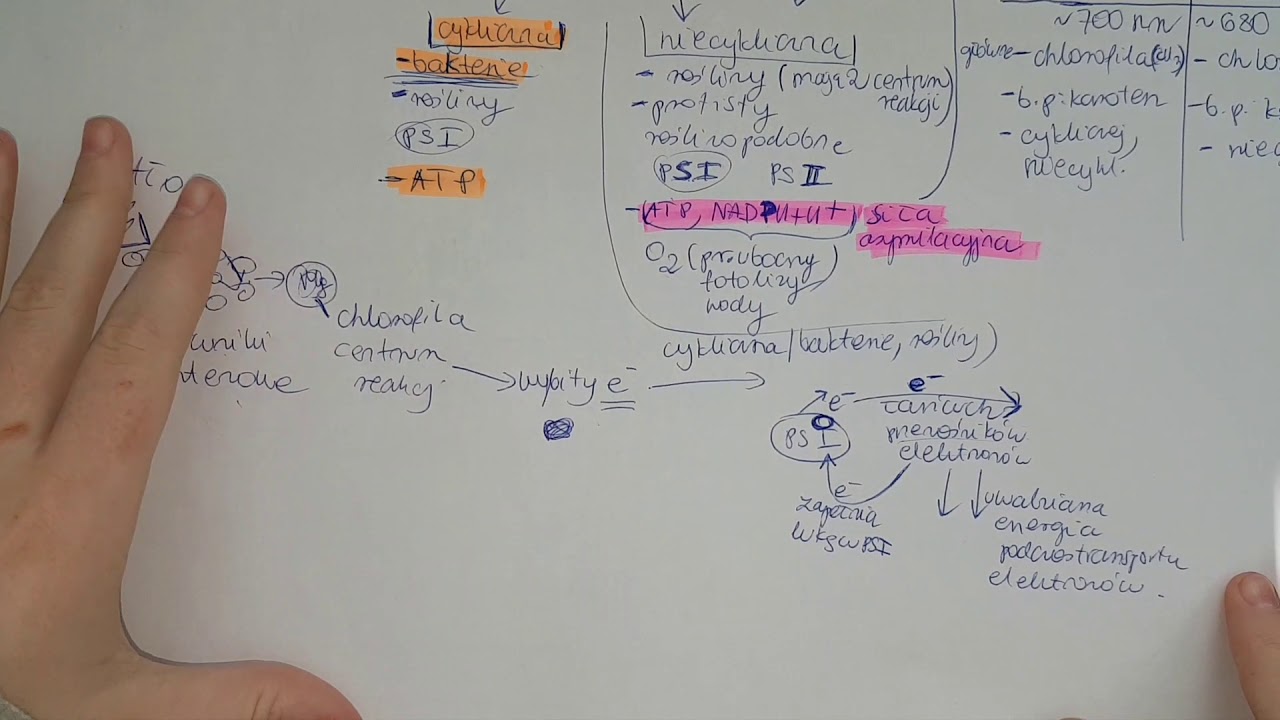 cykliczna
- bakterie
- rośliny
PSI
- ATP
niecykliczna
- rośliny (mają 2 centrum reakcji)
- protisty
roślinopodobne
PSI PSII
- ATP, NADPH+H+ siła
asymilacyjna
O2 (produboczny
fotolizy
wody)
~700 nm
główne - chlorofil a
- b. p. karoten
- cykliczej,
niecykl.
~680
- chlo
- b. p. k
- niec
chlorofil a
centrum
reakcji
wybity e-
cykliczna (bakterie, rośliny)
e- e-
PSI
łańcuch
przenośników
elektronów
e-
zapełnia
lukę w PSI
uwalniana
energia
podczas transportu
elektronów.